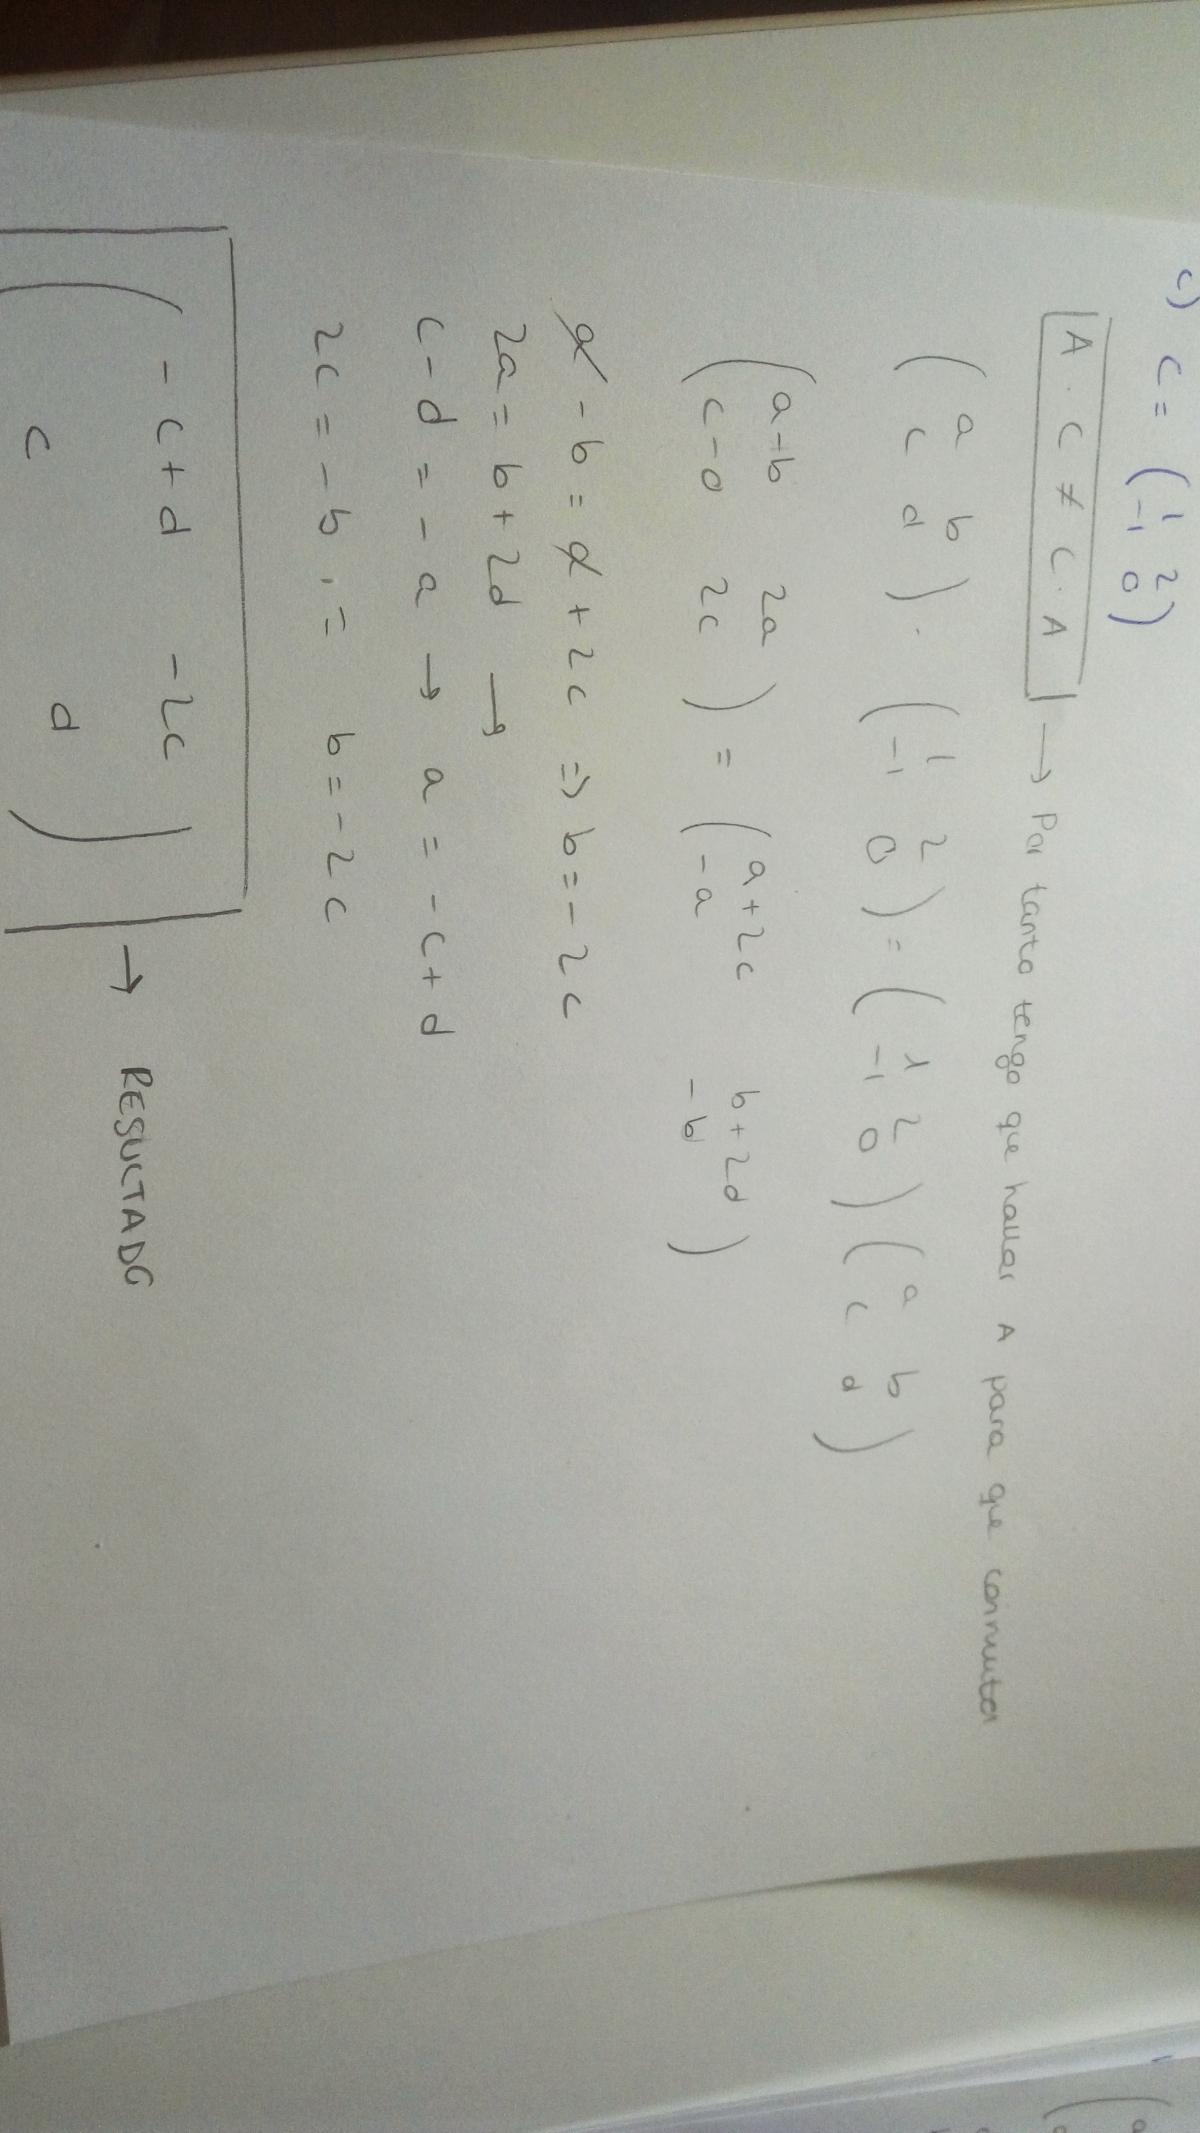 c) C = ( 1 2
-1 0 )
A · C ≠ C · A → Por tanto tengo que hallar A para que conmuten
( a b
c d ) · ( 1 2
-1 0 ) = ( 1 2
-1 0 ) ( a b
c d )
( a-b 2a
c-d 2c ) = ( a+2c b+2d
-a -b )
a - b = a + 2c => b = -2c
2a = b + 2d →
c - d = -a → a = -c + d
2c = -b ; = b = -2c
( -c+d -2c
c d ) → RESULTADO